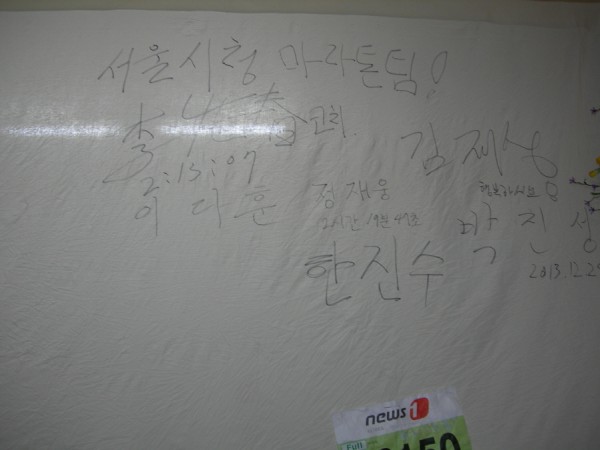 서울시청 마라톤팀!
코치
2:15:07
이다훈
정재웅
2시간 19분 49초
김재성
행복하세요
박진성
2013.12.2
한진수
news1
Full